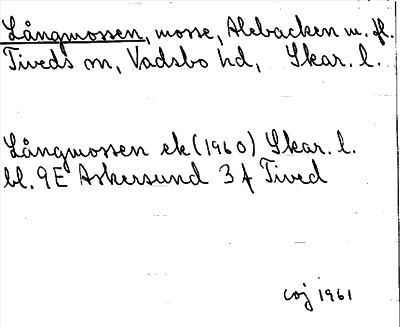 Långmossen, mosse, Alebacken m. fl.
Tiveds sn, Vadsbo hd, Skar. l.
Långmossen ek (1960) Skar. l.
bl. 9E Askersund 3 f Tived
coj 1961